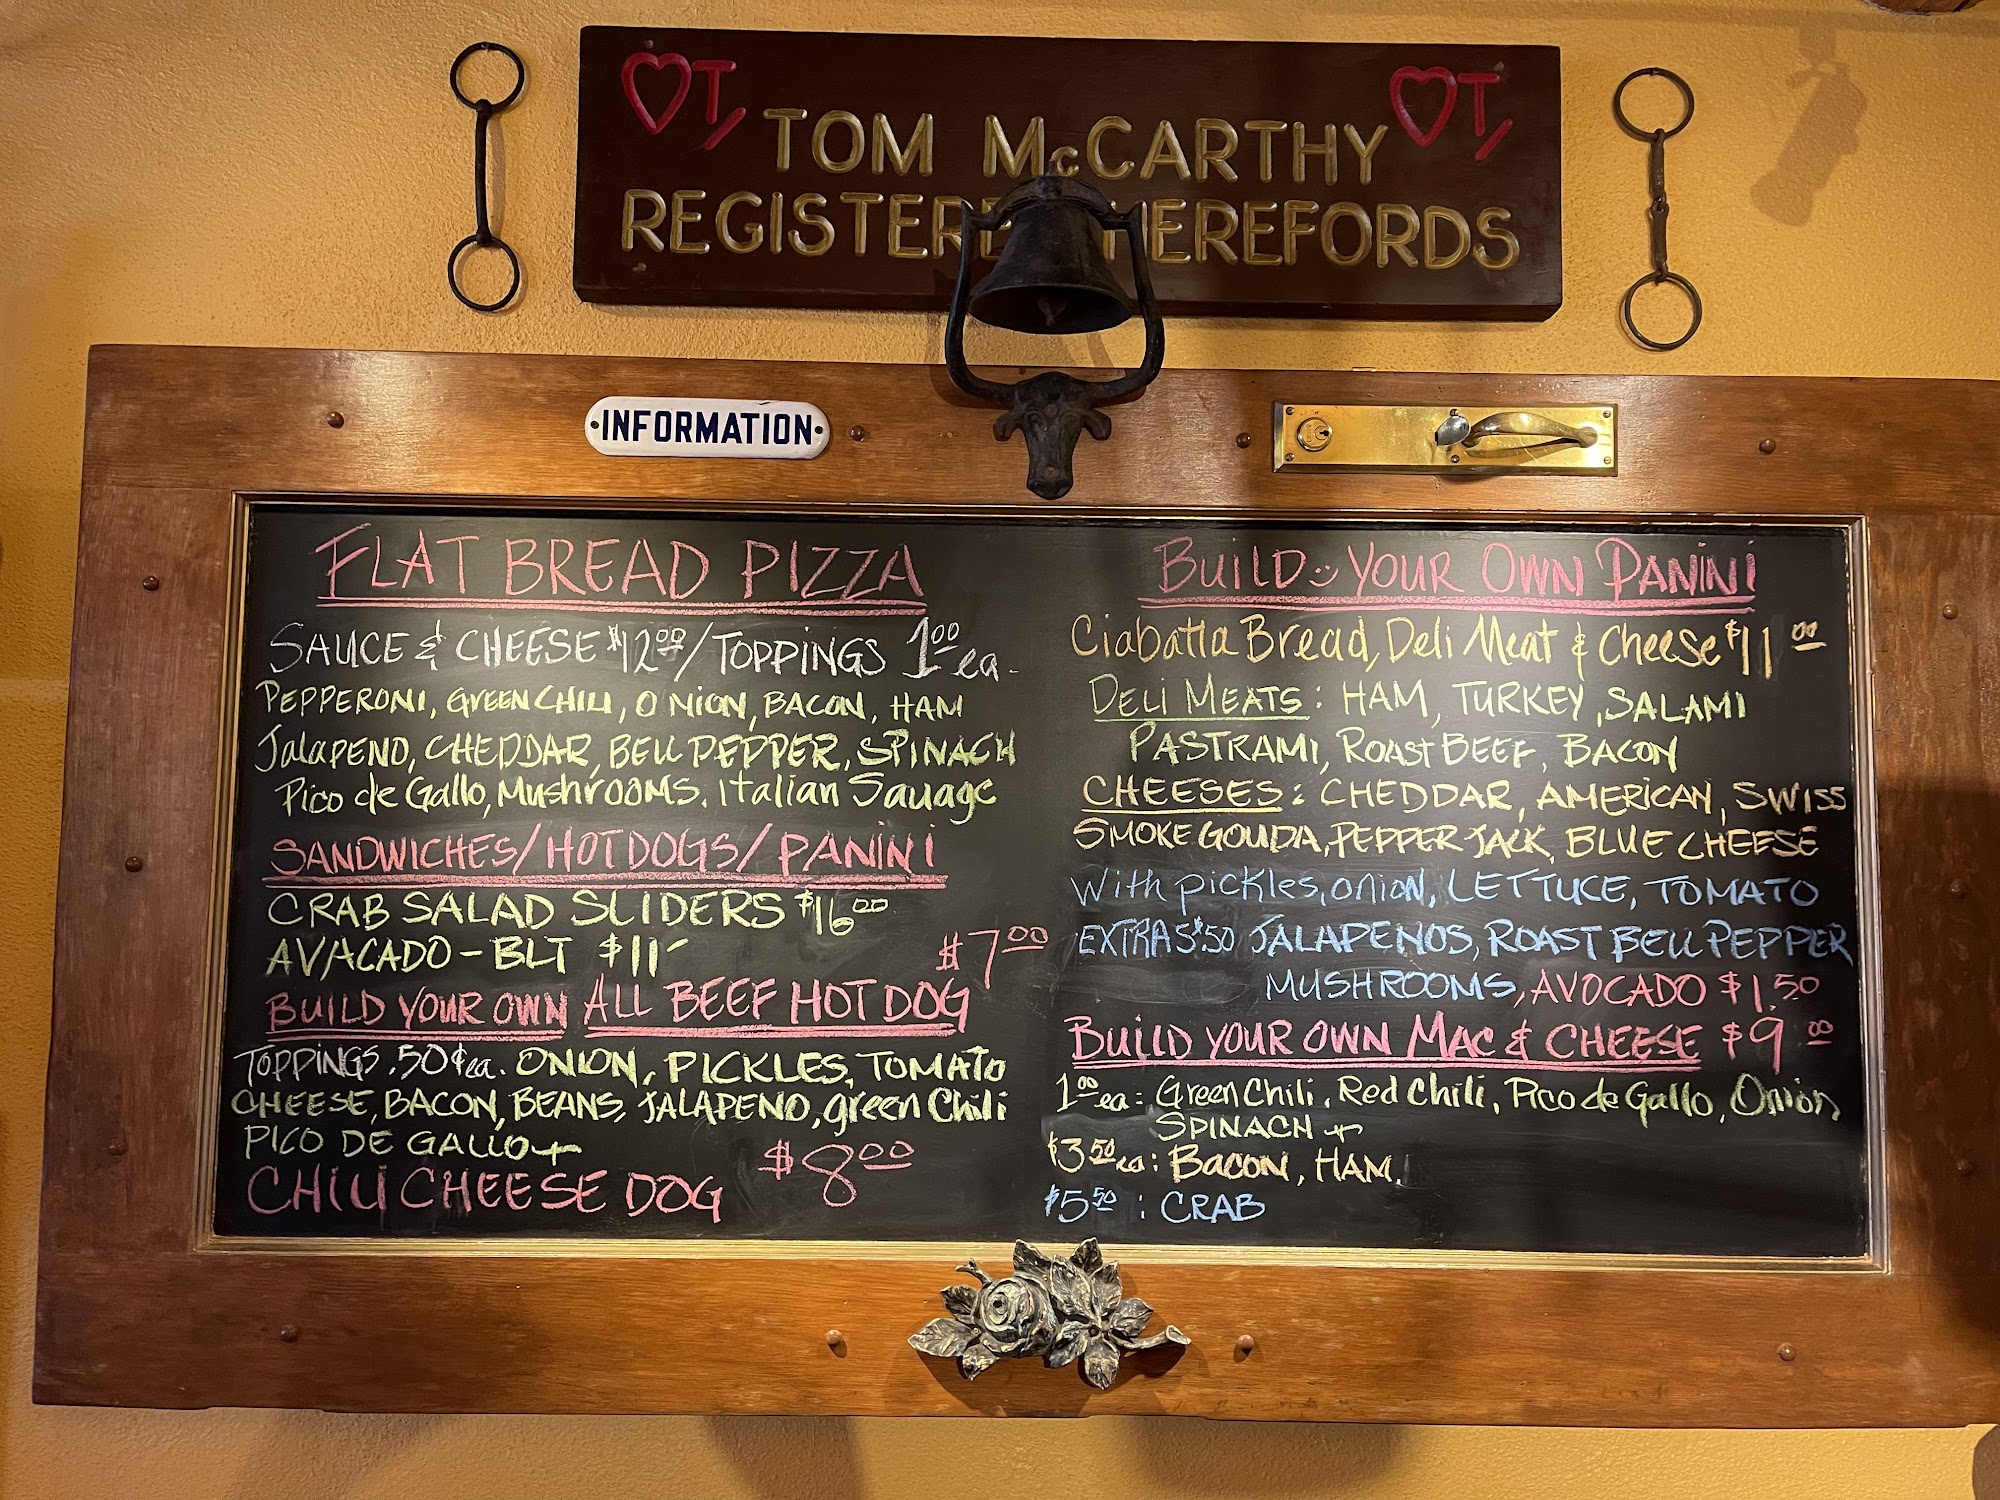 ♡T/ ♡T/
TOM McCARTHY
REGISTERED HEREFORDS
•INFORMATION•
FLAT BREAD PIZZA
SAUCE & CHEESE $12.00/TOPPINGS 1.00 ea.
PEPPERONI, GREEN CHILI, ONION, BACON, HAM
JalaPENO, CHEDDAR, BELL PEPPER, SPINACH
Pico de Gallo, Mushrooms. Italian Sauage
SANDWICHES/HOT DOGS/PANINI
CRAB SALAD SLIDERS $16.00
AVACADO-BLT $11-
$7.00
BUILD YOUR OWN ALL BEEF HOT DOG
TOPPINGS .50¢ ea. ONION, PICKLES, TOMATO
CHEESE, BACON, BEANS, JALAPENO, green Chili
PICO DE GALLO +
CHILI CHEESE DOG $8.00
BUILD YOUR OWN PANINI
Ciabatta Bread, Deli Meat & Cheese $11.00
DELI MEATS: HAM, TURKEY, SALAMI
PASTRAMI, ROAST BEEF, BACON
CHEESES: CHEDDAR, AMERICAN, SWISS
SMOKE GOUDA, PEPPER JACK, BLUE CHEESE
With pickles, onion, LETTUCE, TOMATO
EXTRAS $.50 JALAPENOS, ROAST BELL PEPPER
MUSHROOMS, AVOCADO $1.50
BUILD YOUR OWN MAC & CHEESE $9.00
1.00 ea: Green Chili, Red Chili, Pico de Gallo, Onion
SPINACH +
$3.50 ea: BACON, HAM.
$5.50: CRAB